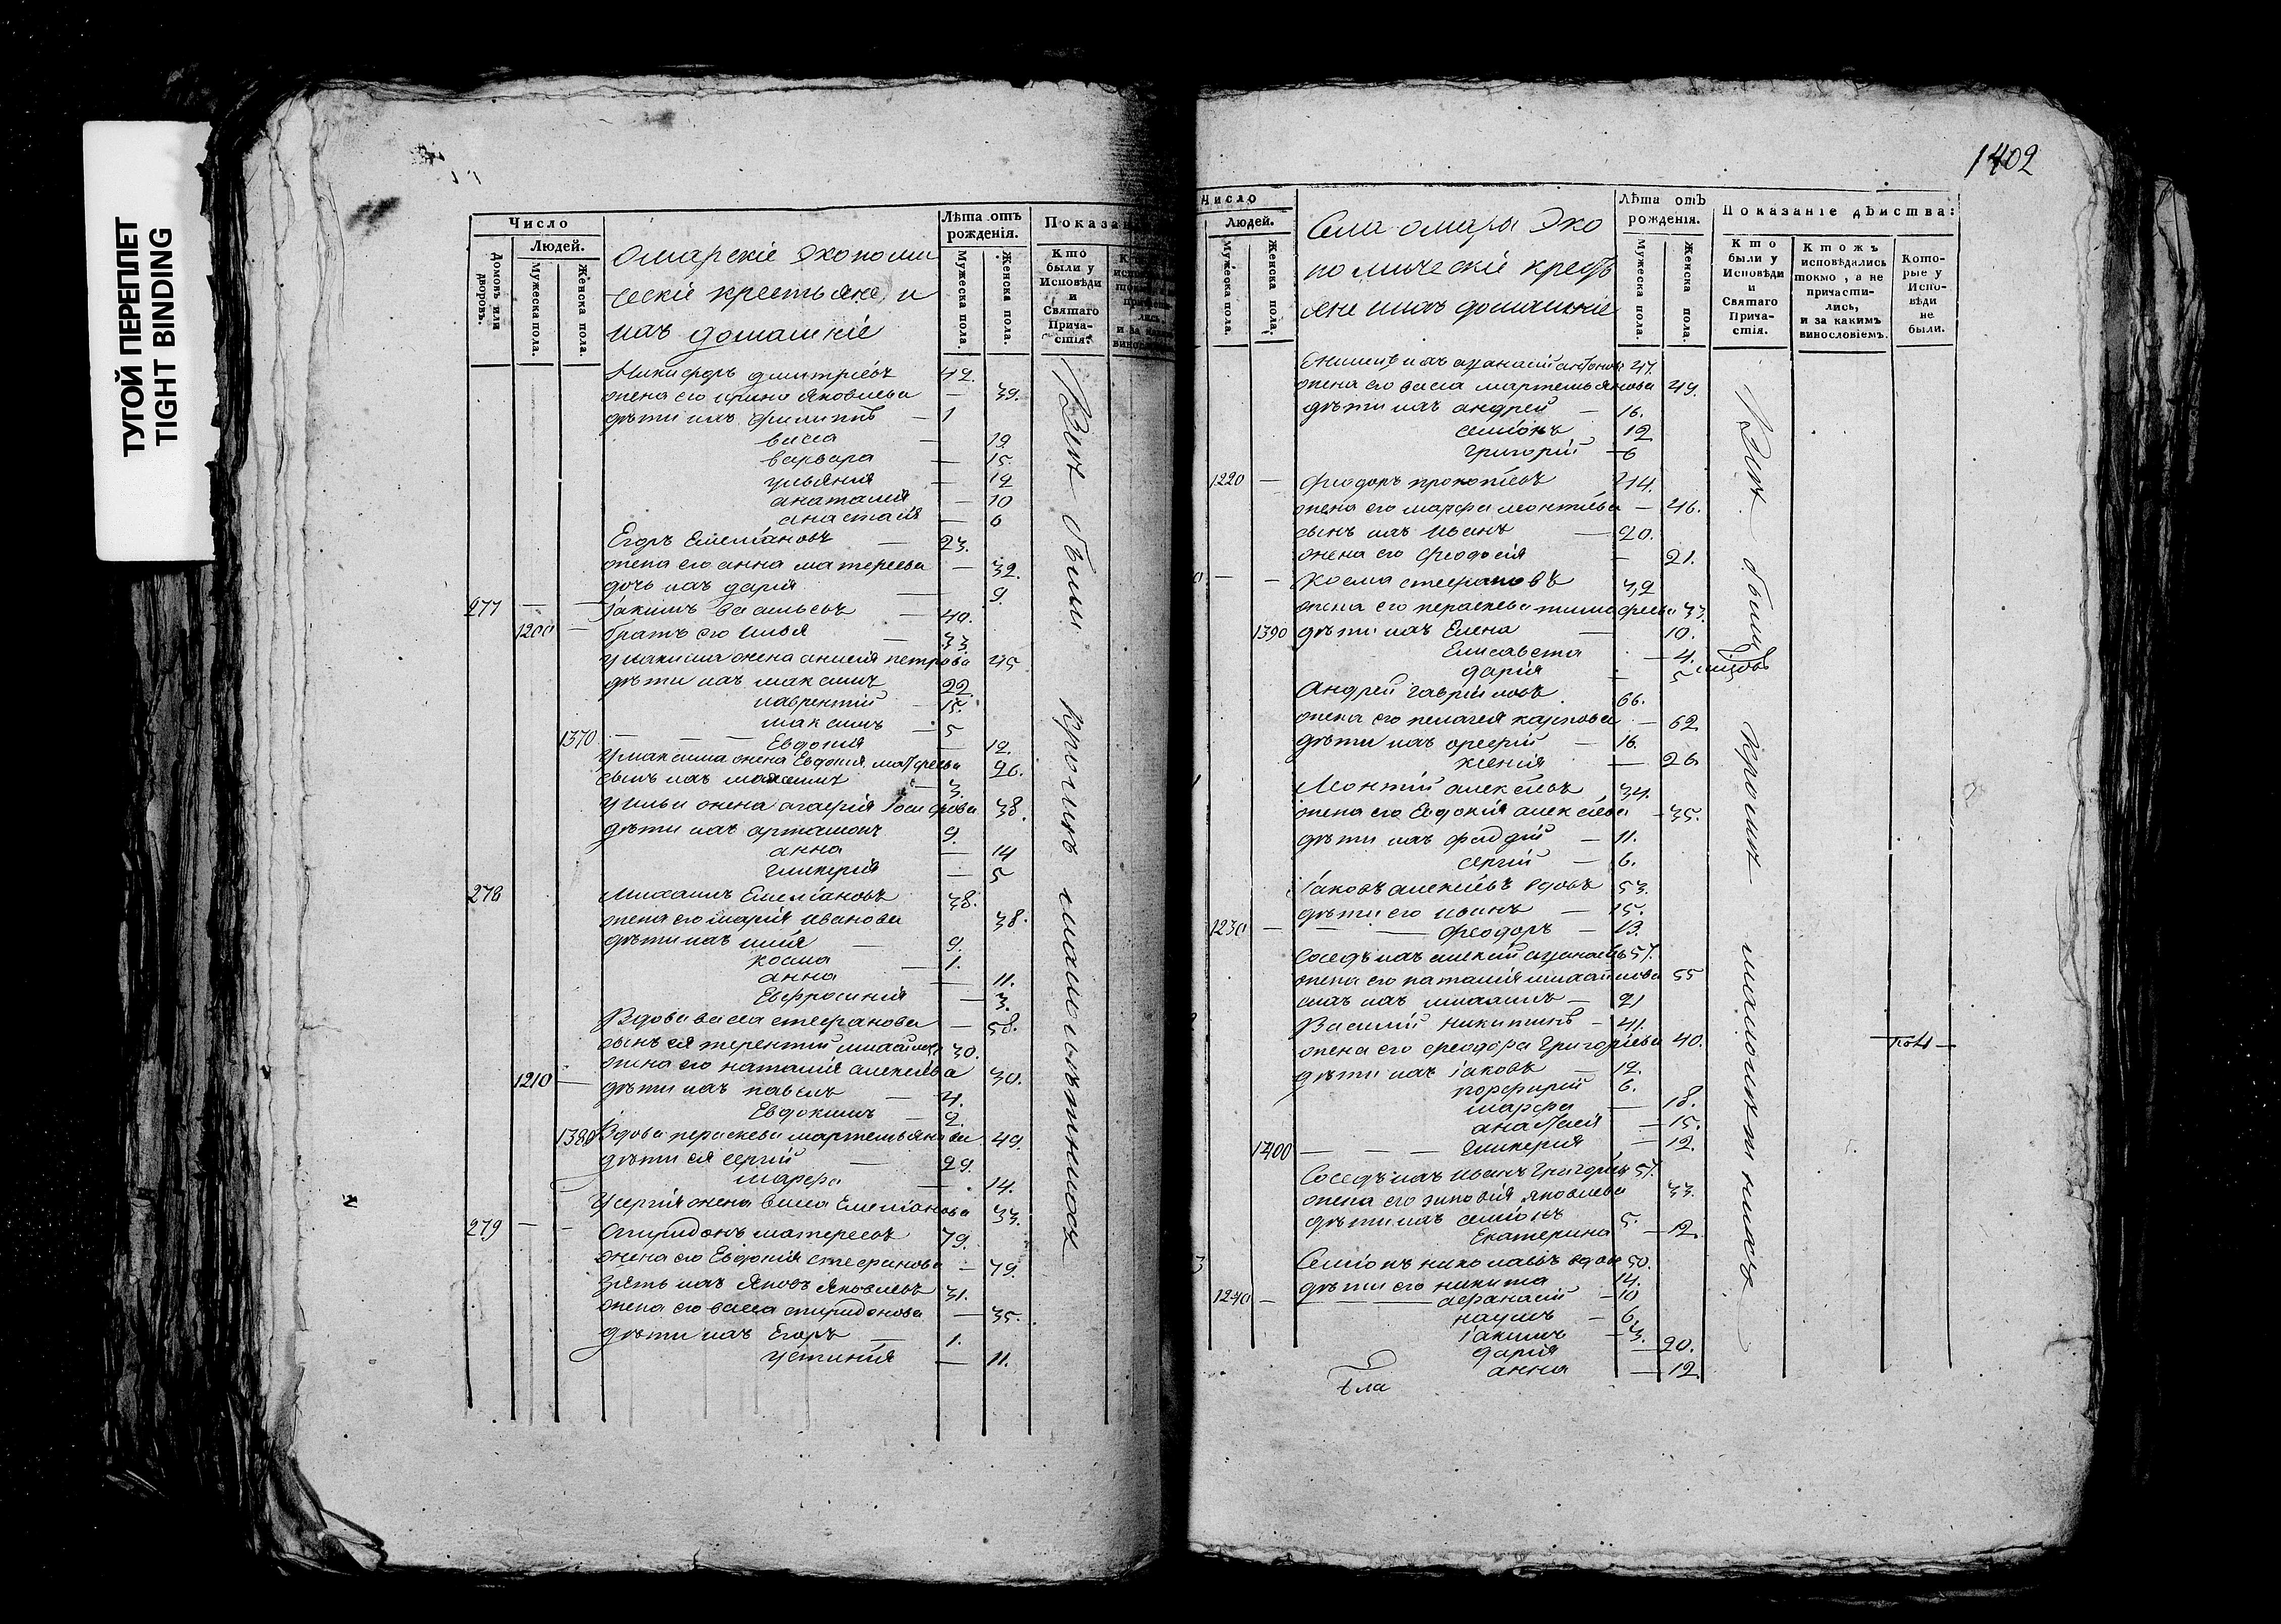 ТУГОЙ ПЕРЕПЛЕТ
TIGHT BINDING
Число
Людей.
Домовъ или дворовъ.
Мужеска пола.
Женска пола.
Омарскіе экономи
ческіе крестьяне, и
ихъ домашніе
Лѣта отъ рожденія.
Мужеска пола.
Женска пола.
Показан
Кто были у Исповѣди и Святаго Прича-стія.
Никифоръ дмитріевъ 42.
жена его ирина Яковлева — 39.
дѣти ихъ филиппъ — 1
васса — 19
варвара — 15.
ульянія — 12
анаталія — 10
анастасія — 6
Егоръ Емеліановъ — 23.
жена его анна матвеева — 32.
дочь ихъ дарія 9.
277 — — Іакимъ васильевъ — 49.
1200 — братъ его илья — 33.
у иакима жена анисія петрова 45
дѣти ихъ максимъ 22.
лаврентій — 15.
максимъ — 5
1370 — — — Евдокія — 12.
У максима жена Евдокія матфеева 26.
сынъ ихъ максимъ 3.
у ильи жена агафія Іосифова 38.
дѣти ихъ артамонъ 9.
анна — 14
гликерія — 5
278 Михаилъ Емеліановъ 38.
жена его марія иванова 38.
дѣти ихъ илія — 9.
косма — 1.
анна — 11.
Евфросинія — 3.
Вдова васса стефанова — 58.
сынъ ея терентій михайловъ 30.
жена его наталія алексіева 30.
1210 — дѣти ихъ павелъ — 4.
Евдокимъ — 2.
1380 Вдова параскева мартемьянова 49.
дѣти ея сергій — 29.
марфа — 14.
У сергія жена васса Емеліанова 33.
279 — — Спиридонъ матвеевъ 79.
жена его Евдокія стефанова — 79.
зять ихъ Яковъ Яковлевъ 31.
жена его васса спиридонова — 35.
дѣти ихъ Егоръ — 1.
устинія — 11.
Всѣ были кромѣ малолѣтныхъ
1402
Число
Людей.
Мужеска пола.
Женска пола.
Села омары Эко
номическіе кресть
яне и ихъ домашніе
Лѣта отъ рожденія.
Мужеска пола.
Женска пола.
Показаніе дѣйства:
Кто были у Исповѣди и Святаго Прича-стія.
Ктожъ исповѣдались токмо, а не причасти-лись, и за какимъ винословіемъ.
Кото-рые у Испо-вѣди не были.
ихъ афанасій антоновъ 47.
жена его васса мартемьянова 49.
дѣти ихъ андрей — 16.
семіонъ 12
григорій — 6
1220 — феодоръ прокопіевъ
жена его марфа леонтіева — 46.
сынъ ихъ иванъ — 20.
жена его феодосія — 21.
— — косма стефановъ 32
жена его параскева тимофеева 33.
1390 дѣти ихъ Елена — 10.
Елисавета — 4.
дарія — 5
Андрей гавріиловъ 66.
жена его пелагея карпова — 62
дѣти ихъ 16.
ксенія — 26
Леонтій алексіевъ 34.
жена его Евдокія алексіева — 35.
дѣти ихъ фаддій — 11.
сергій — 6.
Іаковъ алексіевъ вдовъ 53.
дѣти его иванъ — 15.
1230 — — — феодоръ — 13.
соседъ ихъ алексій афанасьевъ 57.
жена его наталія михайлова 55
сынъ ихъ михаилъ — 21
Василій никитинъ — 41.
жена его феодора григоріева 40.
дѣти ихъ іаковъ — 12.
порфирій 6.
марфа — 18.
анастасія — 15.
1400 — — — гликерія — 12.
Соседъ ихъ иванъ григорьевъ 57.
жена его зиновія яковлева 33.
дѣти ихъ семіонъ 5.
Екатерина — 12.
Семіонъ николаевъ вдовъ 50.
дѣти его никита 14.
1240 — — афанасій — 10
наумъ — 6.
іакимъ — 3.
дарія — 20.
анна — 12.
Всѣ были кромѣ малолѣтныхъ